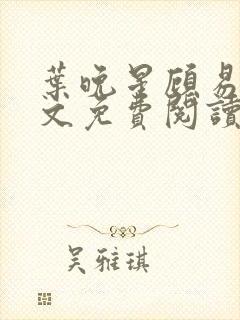 葉晚星顧易
文免費閱讀
吳雅琪